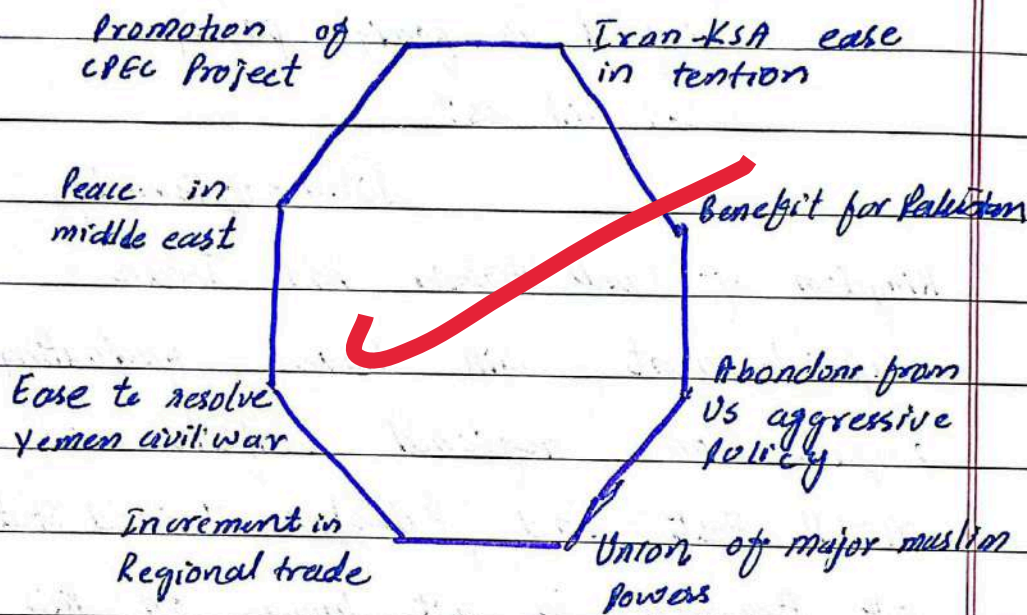 Promotion of
CPEC Project
Iran-KSA ease
in tention
Peace in
middle east
Benefit for Pakistan
Ease to resolve
Yemen civil war
Abandons from
US aggressive
Policy
Increment in
Regional trade
Union of major muslim
Powers